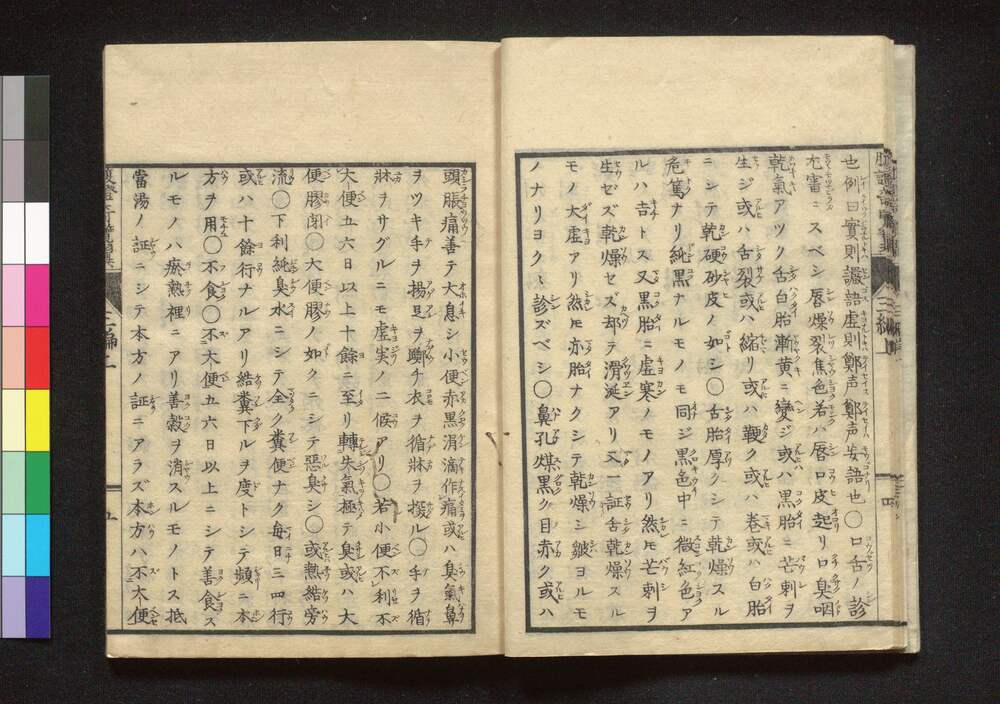 也例曰實則讝語虚則鄭声鄭声妄語也〇口舌ノ診
尤審ニスベシ唇燥裂焦色若ハ唇口皮起リ口臭咽
乾氣アツク舌白胎漸黄ニ變ジ或ハ黒胎ニ芒刺ヲ
生ジ或ハ舌裂或ハ縮リ或ハ鞕ク或ハ巻或ハ白胎
ニシテ乾硬砂皮ノ如シ〇舌胎厚クシテ乾燥スル
危篤ナリ純黒ナルモノモ同ジ黒色中ニ微紅色ア
ルハ吉トス又黒胎ニ虚寒ノモノアリ然モ芒刺ヲ
生ゼズ乾燥セズ却テ滑涎アリ又一証舌乾燥スル
モノ大虚アリ然モ亦胎ナクシテ乾燥シ皺ヨルモ
ノナリヨク〻診ズベシ〇鼻孔煤黒ク目赤ク或ハ
三編上
四
頭脹痛善テ大息シ小便赤黒涓滴作痛或ハ臭氣鼻
ヲツキ手ヲ揚足ヲ躑チ衣ヲ循牀ヲ撮ル〇手ヲ循
牀ヲサグルニモ虚実ノ二候アリ〇若小便不利不
大便五六日以上十餘ニ至リ轉失氣極テ臭或ハ大
便膠閉〇大便膠ノ如クニシテ惡臭シ〇或熱結旁
流〇下利純臭水ニシテ全ク糞便ナク毎日三四行
或ハ十餘行ナルアリ結糞下ルヲ度トシテ頻ニ本
方ヲ用〇不食〇不大便五六日以上ニシテ善食ス
ルモノハ瘀熱裡ニアリ善穀ヲ消スルモノトス抵
當湯ノ証ニシテ本方ノ証ニアラズ本方ハ不大便
五